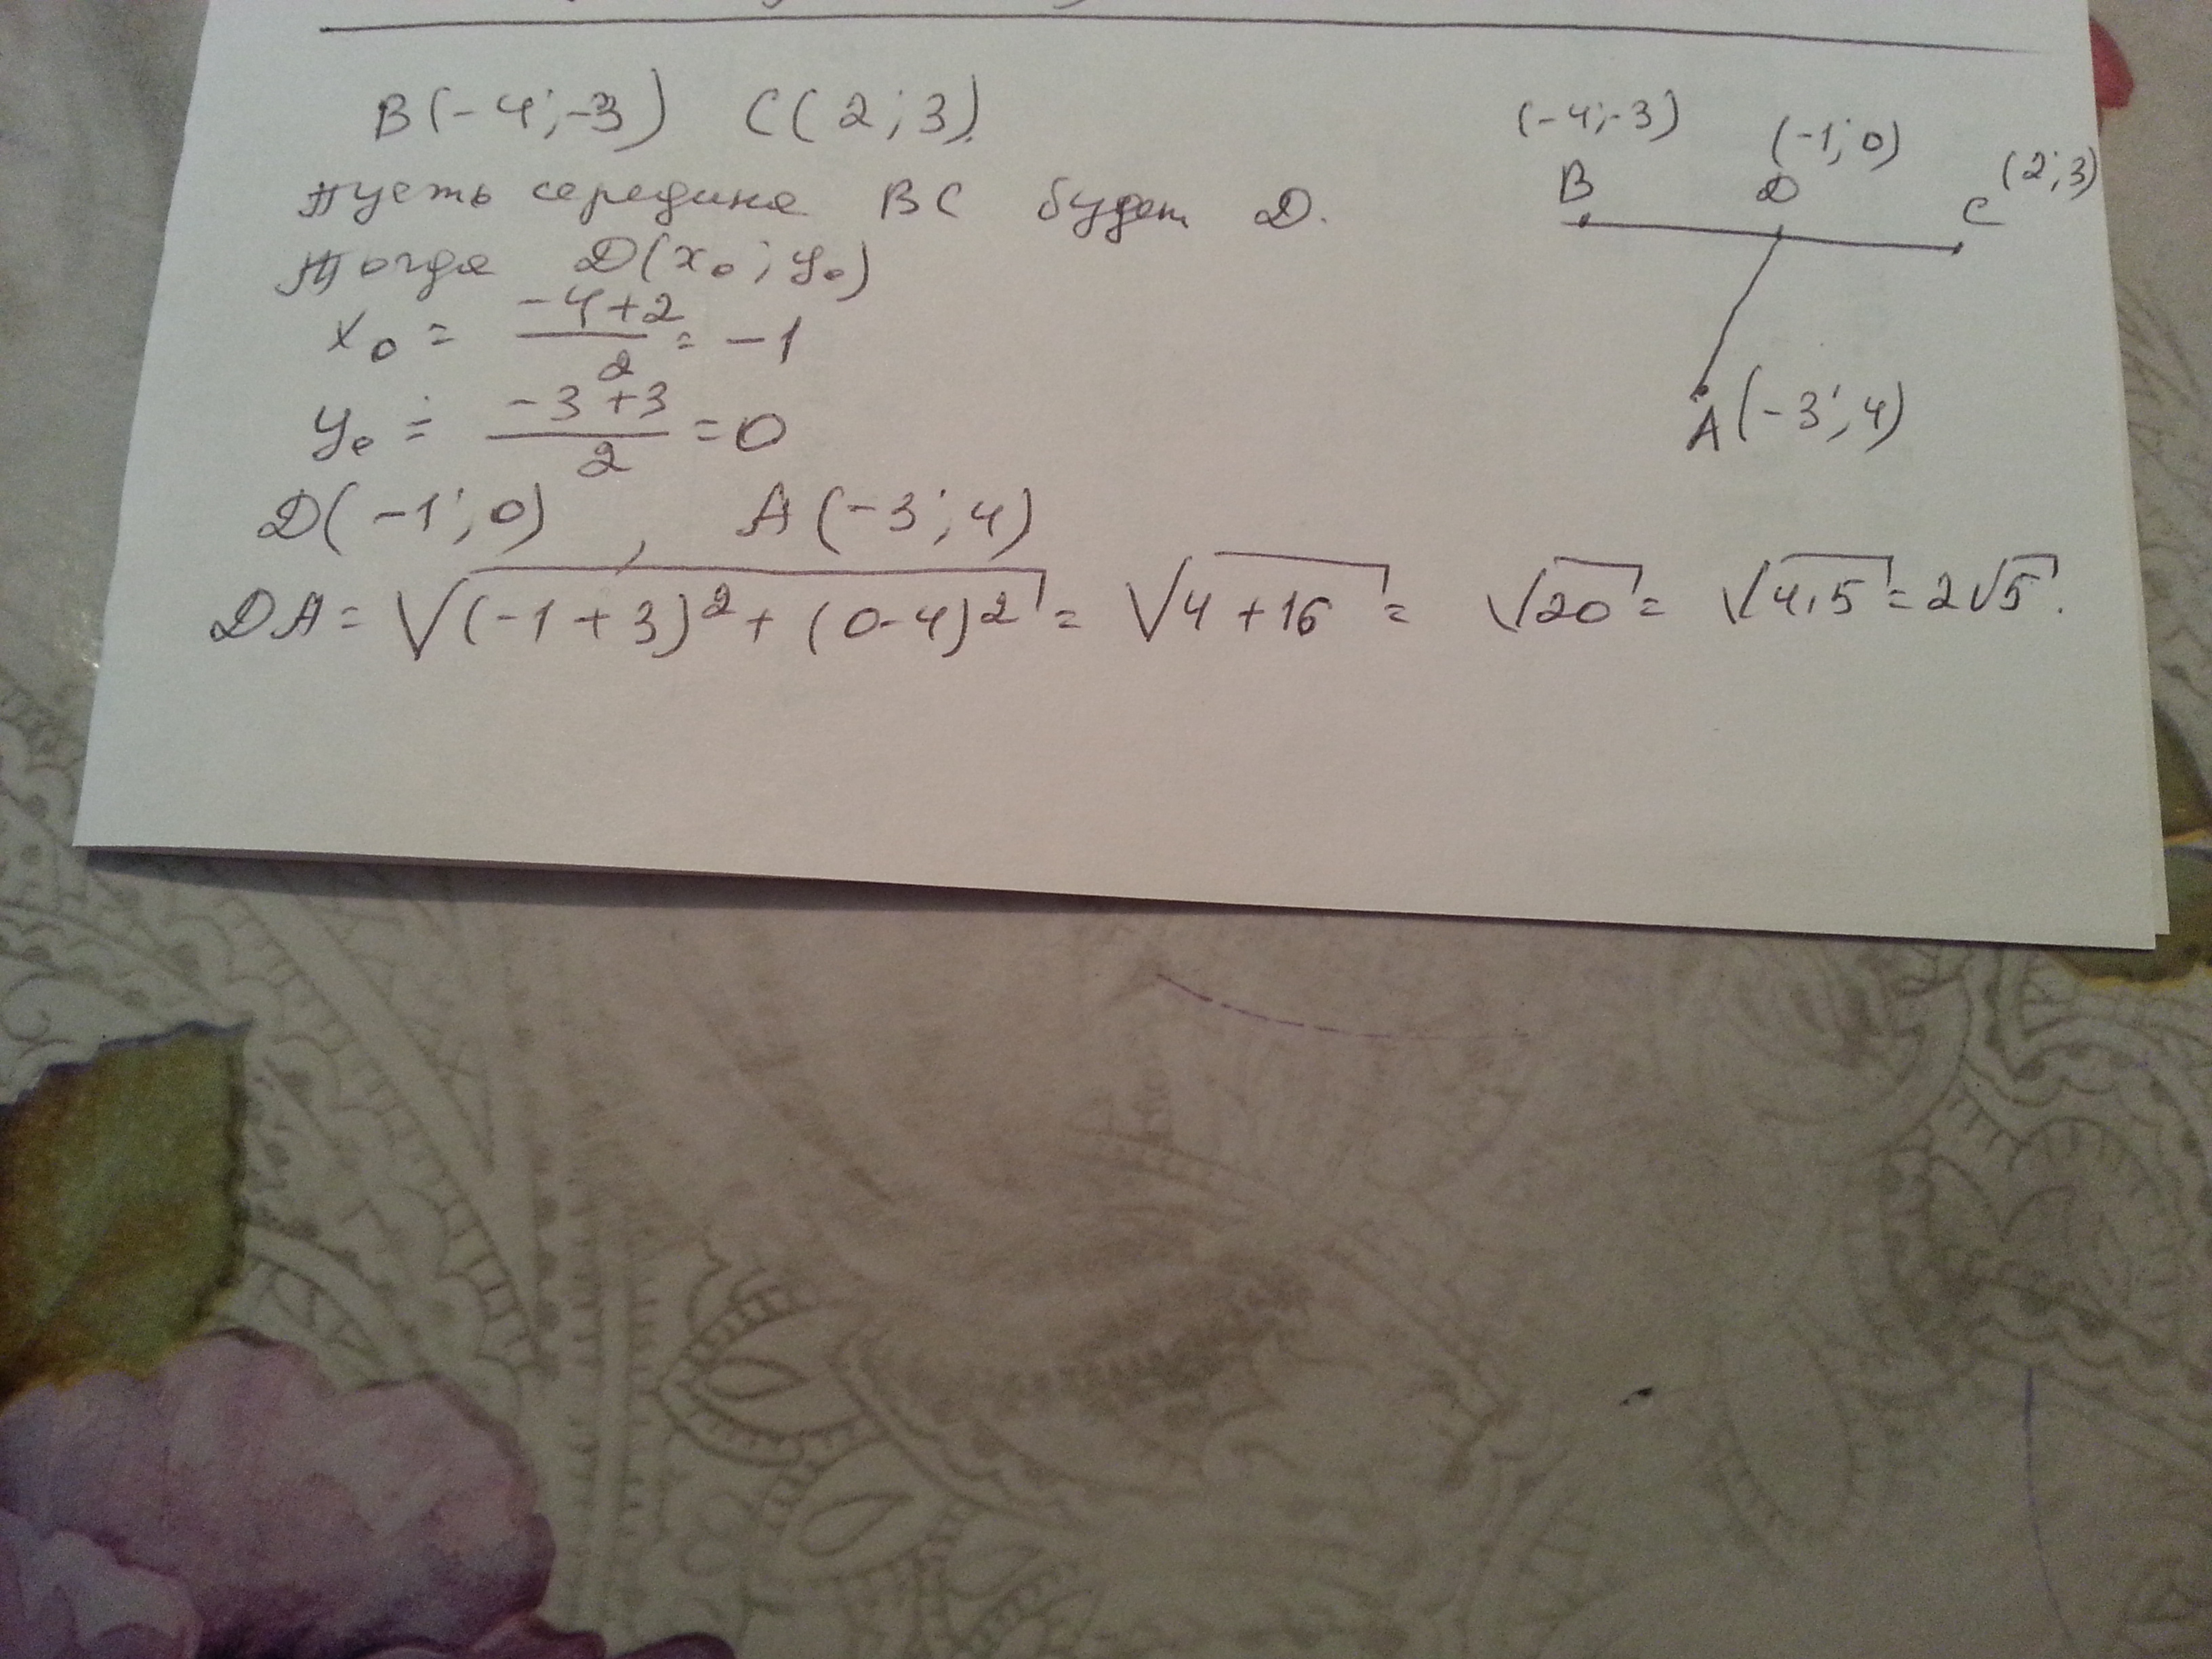 B(-4;-3) C(2;3).
Пусть середина BC будет D.
Тогда D(x₀;y₀)
x₀ = (-4+2)/2 = -1
y₀ = (-3+3)/2 = 0
D(-1;0), A(-3;4)
DA = √((-1+3)²+(0-4)²) = √(4+16) = √20 = √(4·5) = 2√5.
(-4;-3) (-1;0) (2;3)
B D C
A(-3;4)